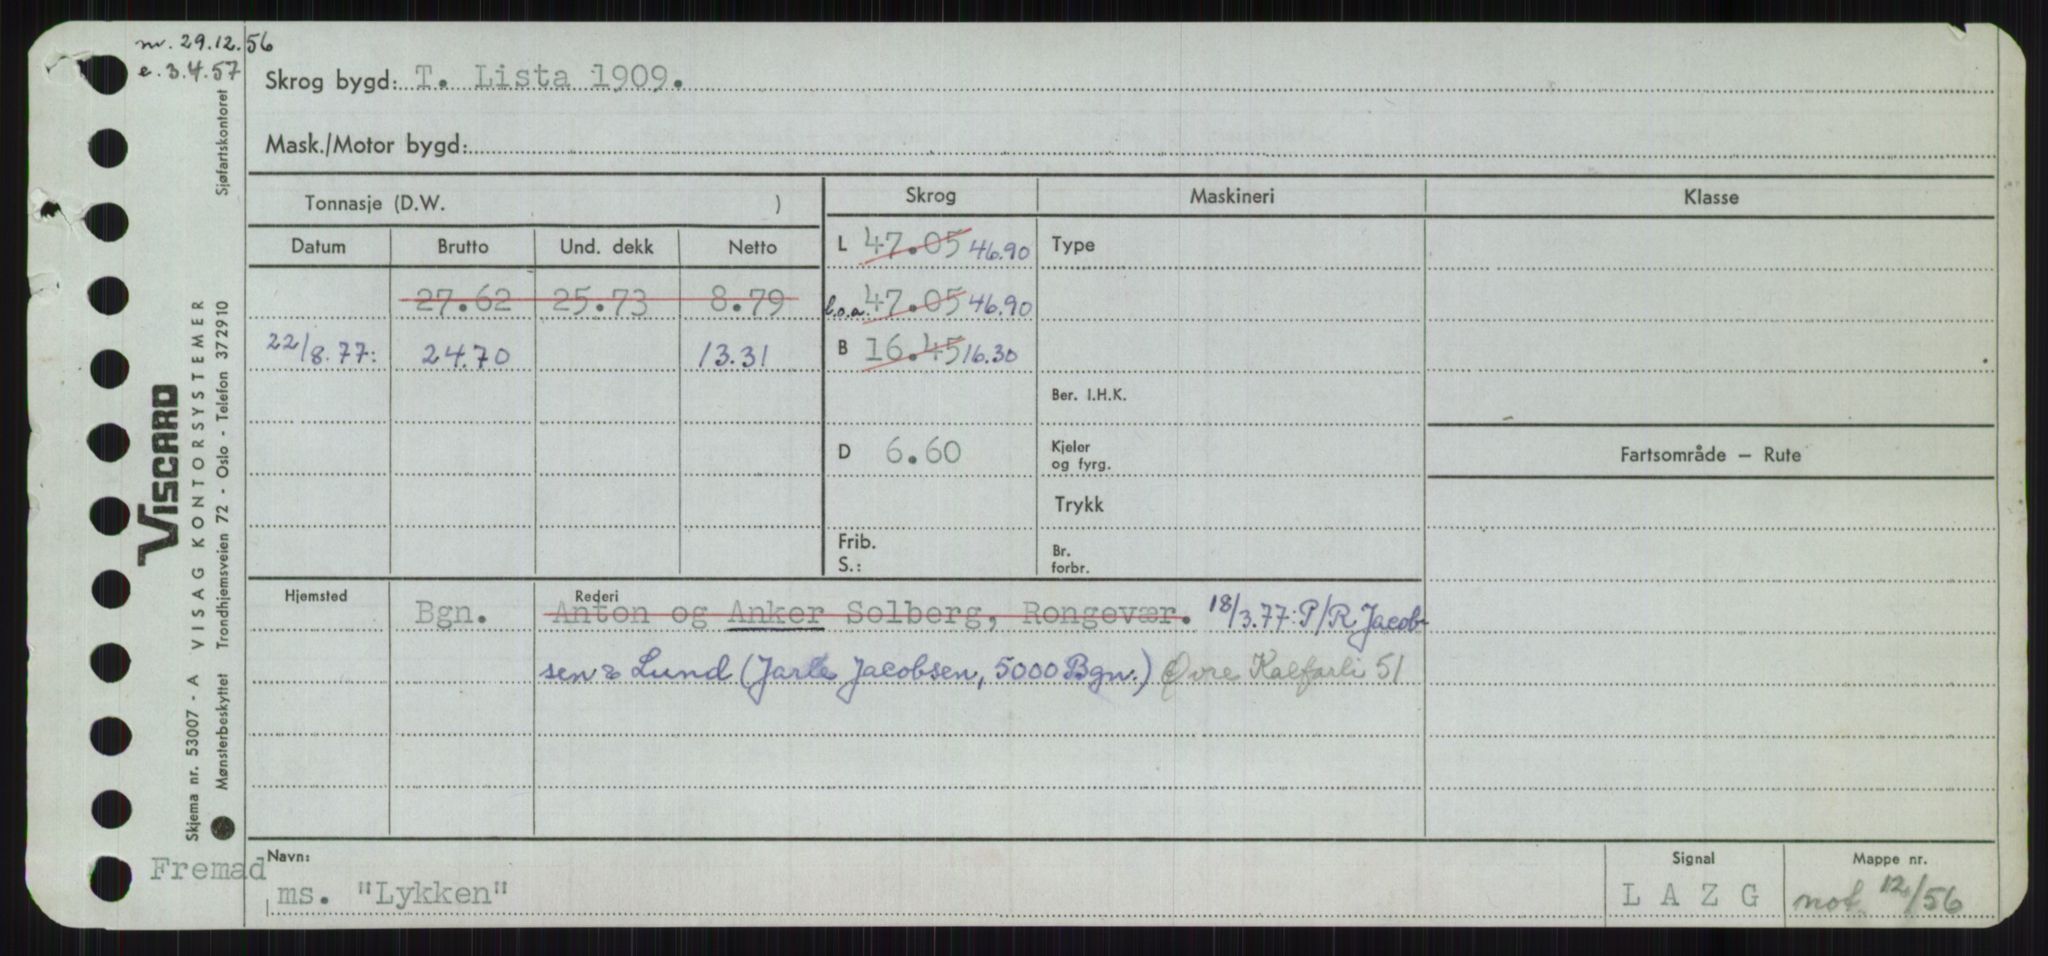 nv. 29.12.56
e. 3.4.57
Skrog bygd: T. Lista 1909.
Mask./Motor bygd:
Tonnasje (D.W. )
Skrog
Maskineri
Klasse
Datum Brutto Und. dekk Netto
L 47.05 46.90
Type
27.62 25.73 8.79
l.o.a. 47.05 46.90
22/8.77: 24.70 13.31
B 16.45 16.30
Ber. I.H.K.
D 6.60
Kjeler
og fyrg.
Fartsområde – Rute
Trykk
Frib.
S.:
Br.
forbr.
Hjemsted Bgn.
Rederi
Anton og Anker Solberg, Rongevær. 18/3.77: P/R Jacob-
sen & Lund (Jarle Jacobsen, 5000 Bgn.) Øvre Kalfarli 51
Fremad
Navn:
ms. "Lykken"
Signal
L A Z G
Mappe nr.
not. 12/56
Skjema nr. 53007 - A VISAG KONTORSYSTEMER
VISCARD
Mønsterbeskyttet Trondhjemsveien 72 - Oslo - Telefon 372910 Sjøfartskontoret